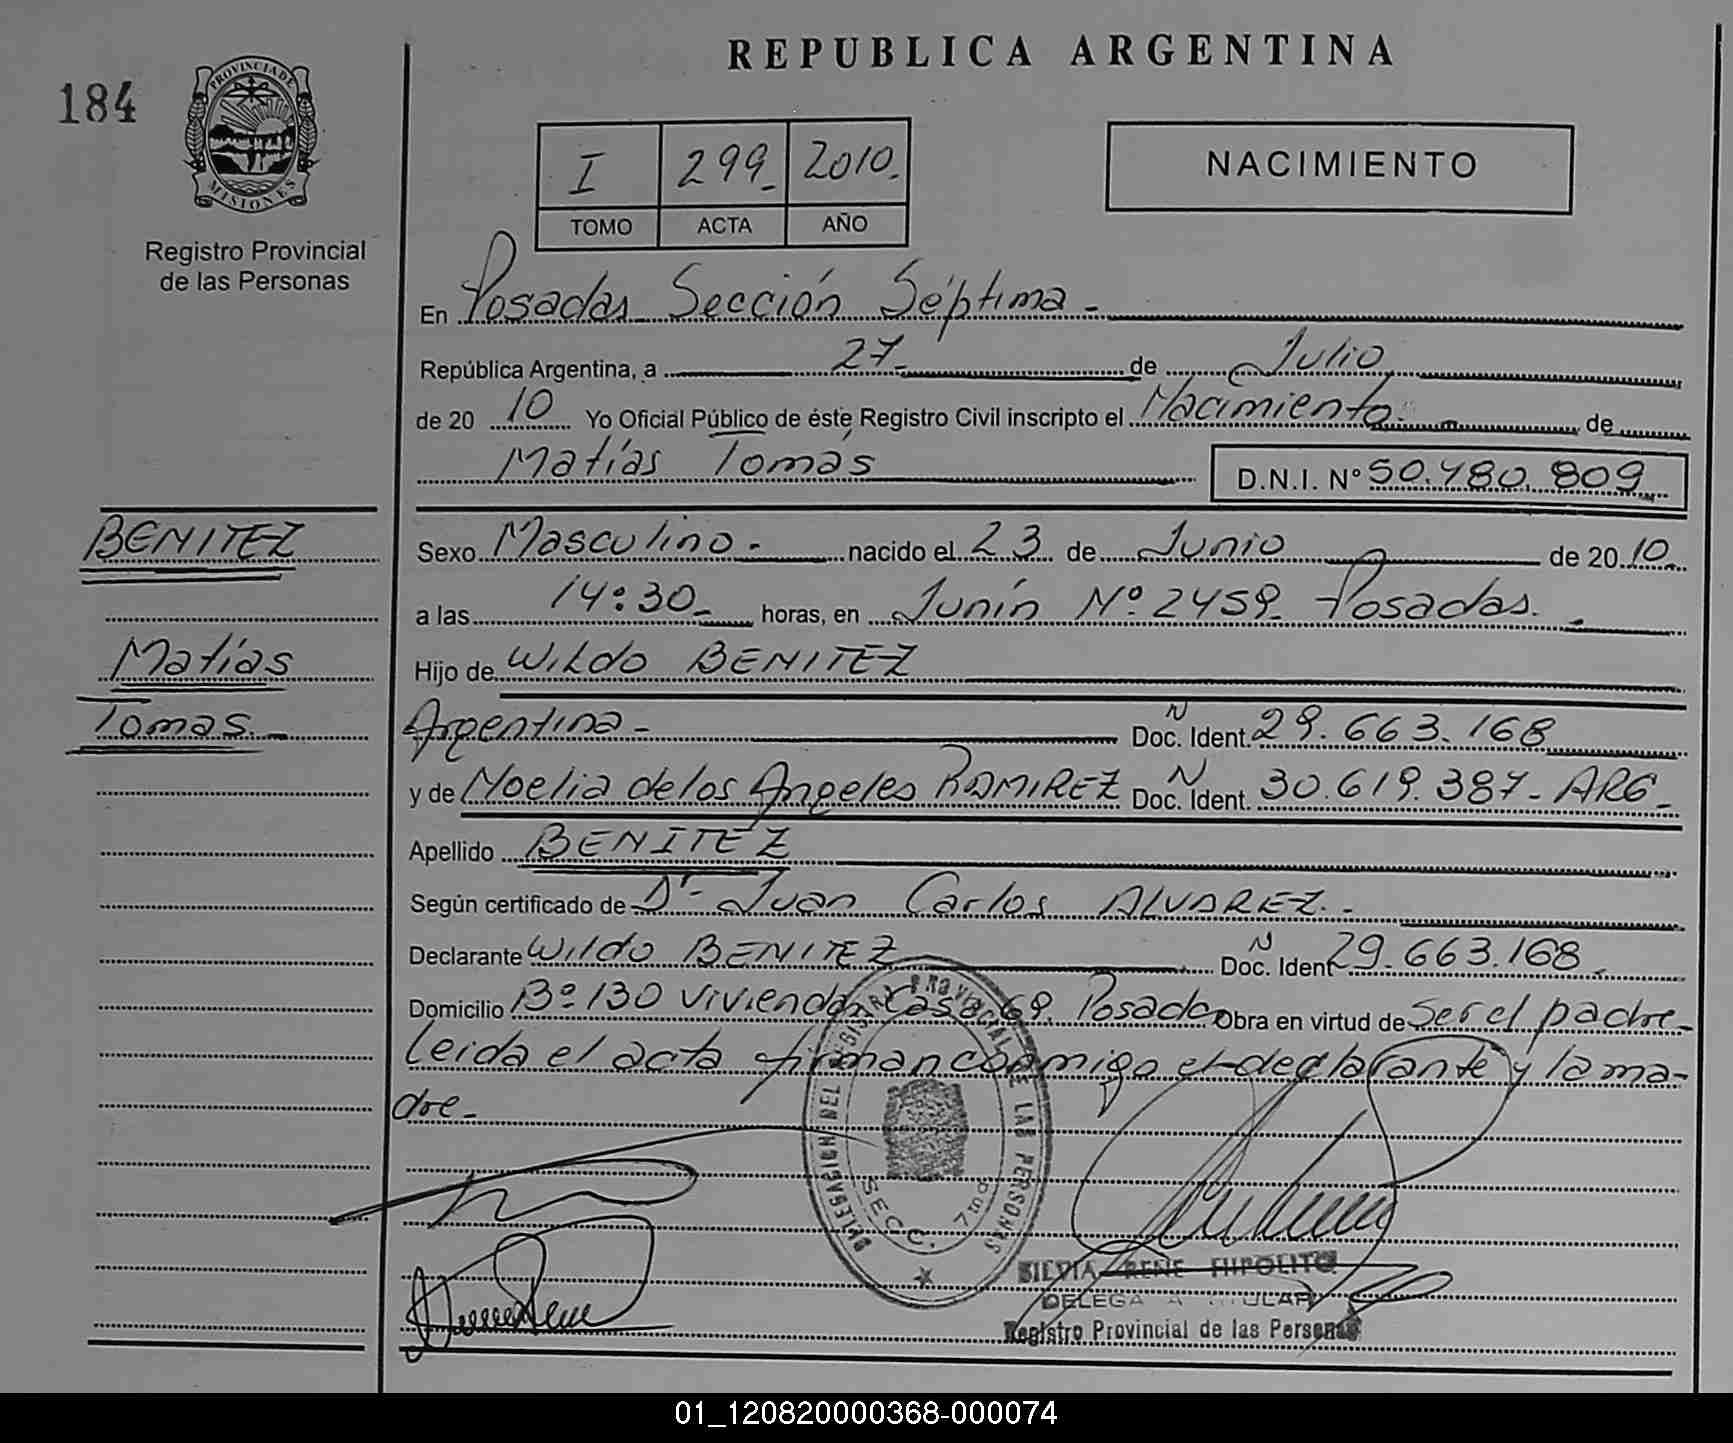 REPUBLICA ARGENTINA
184
PROVINCIA DE
MISIONES
Registro Provincial
de las Personas
I 299_ 2010_
TOMO ACTA AÑO
NACIMIENTO
En Posadas Sección Séptima -
República Argentina, a 27_ de Julio
de 20 10 Yo Oficial Público de éste Registro Civil inscripto el Nacimiento. de
Matías Tomás D.N.I. N° 50.480.809
BENITEZ
Sexo Masculino. - nacido el 23 de Junio de 20 10
a las 14:30_ horas, en Junín Nº 2459_ Posadas.
Matías
Hijo de Wildo BENITEZ
Tomas. -
Argentina - N Doc. Ident. 29.663.168
y de Noelia de los Angeles RAMIREZ N Doc. Ident. 30.619.387 - ARG_
Apellido BENITEZ
Según certificado de Dr Juan Carlos ALVAREZ. -
Declarante Wildo BENITEZ N Doc. Ident 29.663.168
Domicilio Bº 130 Viviendas Casa 69. Posadas Obra en virtud de ser el padre_
Leida el acta firman conmigo el declarante y la ma-
dre_
DELEGACION DEL REGISTRO PROVINCIAL DE LAS PERSONAS
SECC. 7ma
SILVIA RENE HIPOLITO
Registro Provincial de las Personas
01_120820000368-000074